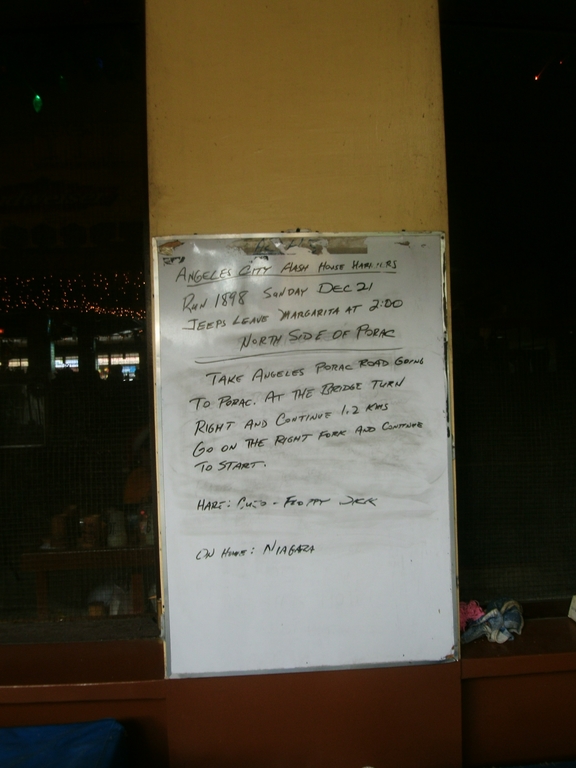 ANGELES CITY HASH HOUSE HARRIERS
RUN 1898 SUNDAY DEC 21
JEEPS LEAVE MARGARITA AT 2:00
NORTH SIDE OF PORAC
TAKE ANGELES PORAC ROAD GOING
TO PORAC. AT THE BRIDGE TURN
RIGHT AND CONTINUE 1.2 KMS
GO ON THE RIGHT FORK AND CONTINUE
TO START.
HARE: - FLOPPY DICK
ON HOME: NIAGARA